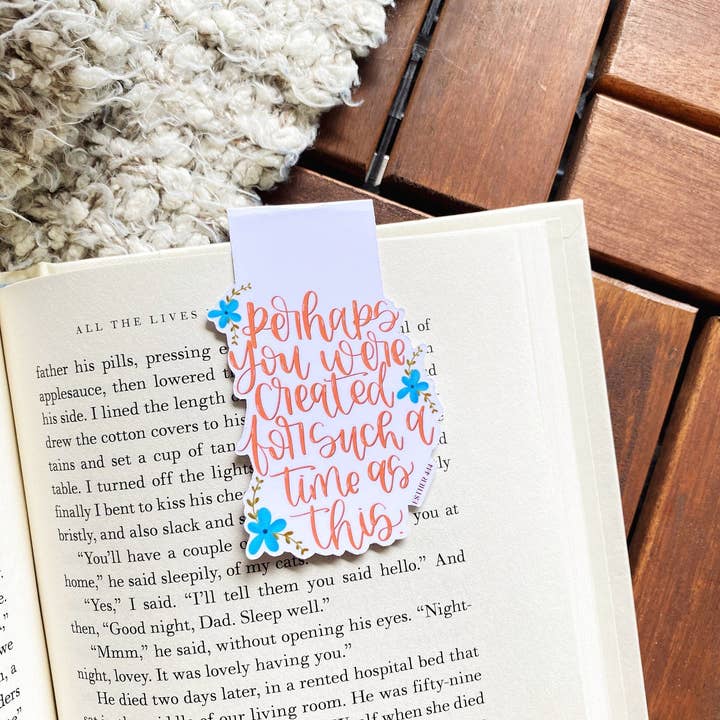 perhaps
you were
created
for such a
time as
this.
ESTHER 4:14
ALL THE LIVES
father his pills, pressing of
applesauce, then lowered
his side. I lined the length
drew the cotton covers to his
tains and set a cup of
table. I turned off the lights
finally I bent to kiss his
bristly, and also slack and you at
“You’ll have a couple
home,” he said sleepily, of my cats.
“Yes,” I said. “I’ll tell them you said hello.” And
then, “Good night, Dad. Sleep well.”
“Mmm,” he said, without opening his eyes. “Night-
night, lovey. It was lovely having you.”
He died two days later, in a rented hospital bed that
in the middle of our living room. He was fifty-nine
when she died